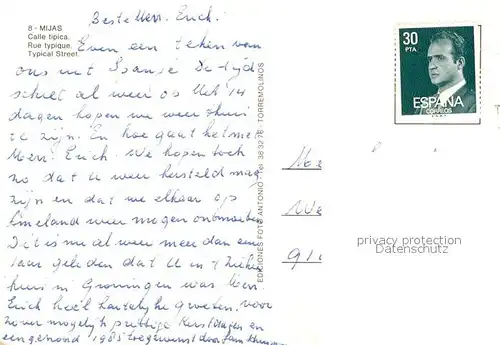 8 - MIJAS
Calle tipica.
Rue typique.
Typical Street.
Besteller. Erich!
Even een teken van
ons uit Spanje de tijd
schiet al weer op Met 14
dagen hopen we weer thuis
te zijn. En hoe gaat het met
Erich. We hopen toch
zo dat U weer hersteld mag
zijn en dat we elkaar op
weer mogen ontmoeten
Dit is nu al weer meer dan een
jaar geleden dat U in 't zieken
huis in Groningen was
Erich heel hartelijke groeten, voor
zover mogelijk prettige Kerstdagen en
een gezond 1985 toegewenst door fam
EDICIONES FOTO ANTONIO - Tel. 38 32 78 - TORREMOLINOS
30
PTA
ESPAÑA
CORREOS
We
privacy protection
Datenschutz